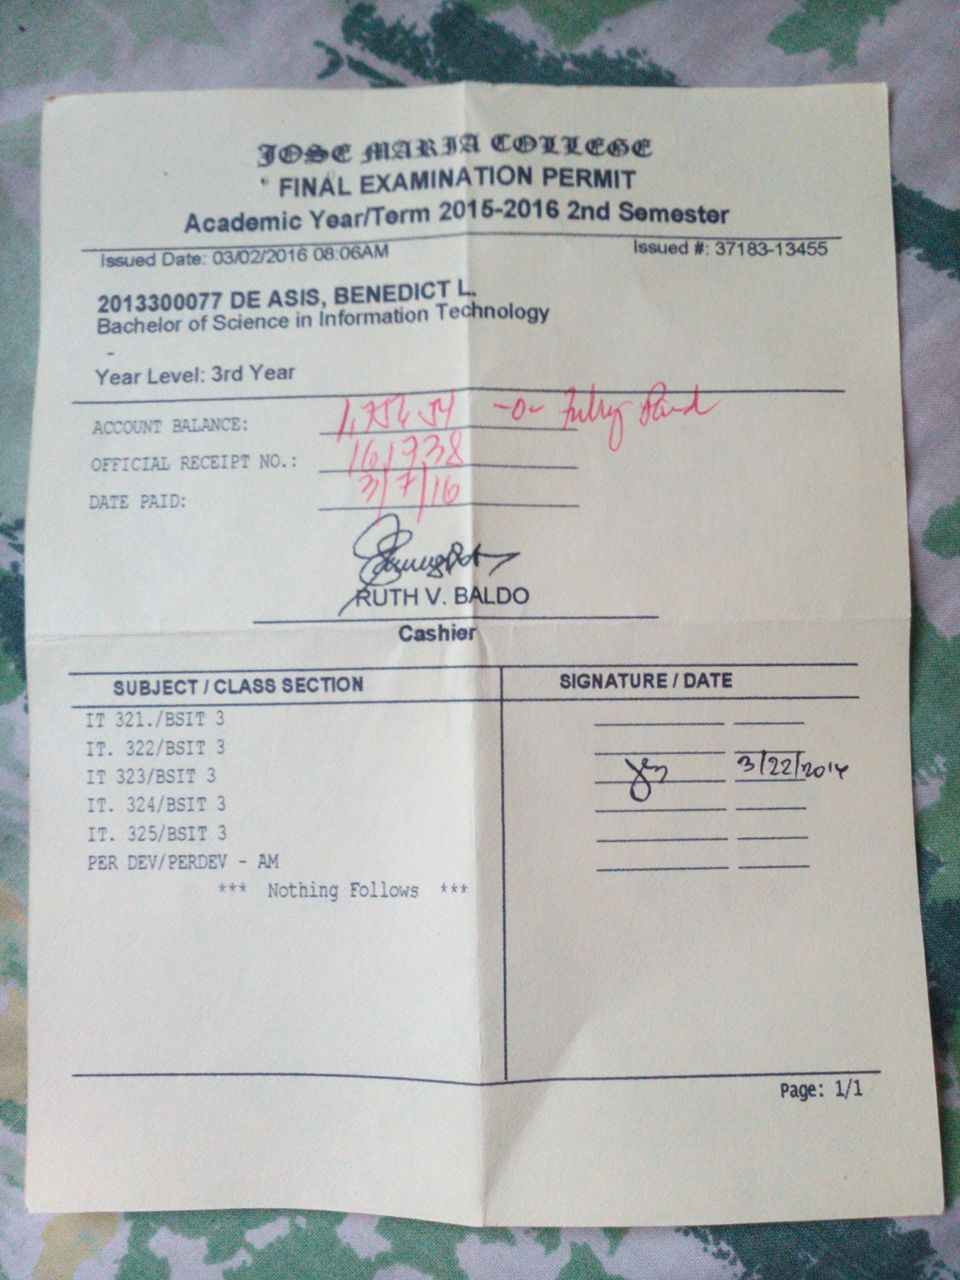 JOSE MARIA COLLEGE
FINAL EXAMINATION PERMIT
Academic Year/Term 2015-2016 2nd Semester
Issued Date: 03/02/2016 08:06AM Issued #: 37183-13455
2013300077 DE ASIS, BENEDICT L.
Bachelor of Science in Information Technology
-
Year Level: 3rd Year
ACCOUNT BALANCE: -0- Fully Paid
OFFICIAL RECEIPT NO.: 161738
DATE PAID: 3/7/16
RUTH V. BALDO
Cashier
SUBJECT / CLASS SECTION SIGNATURE / DATE
IT 321./BSIT 3
IT. 322/BSIT 3
IT 323/BSIT 3 3/22/2016
IT. 324/BSIT 3
IT. 325/BSIT 3
PER DEV/PERDEV - AM
*** Nothing Follows ***
Page: 1/1